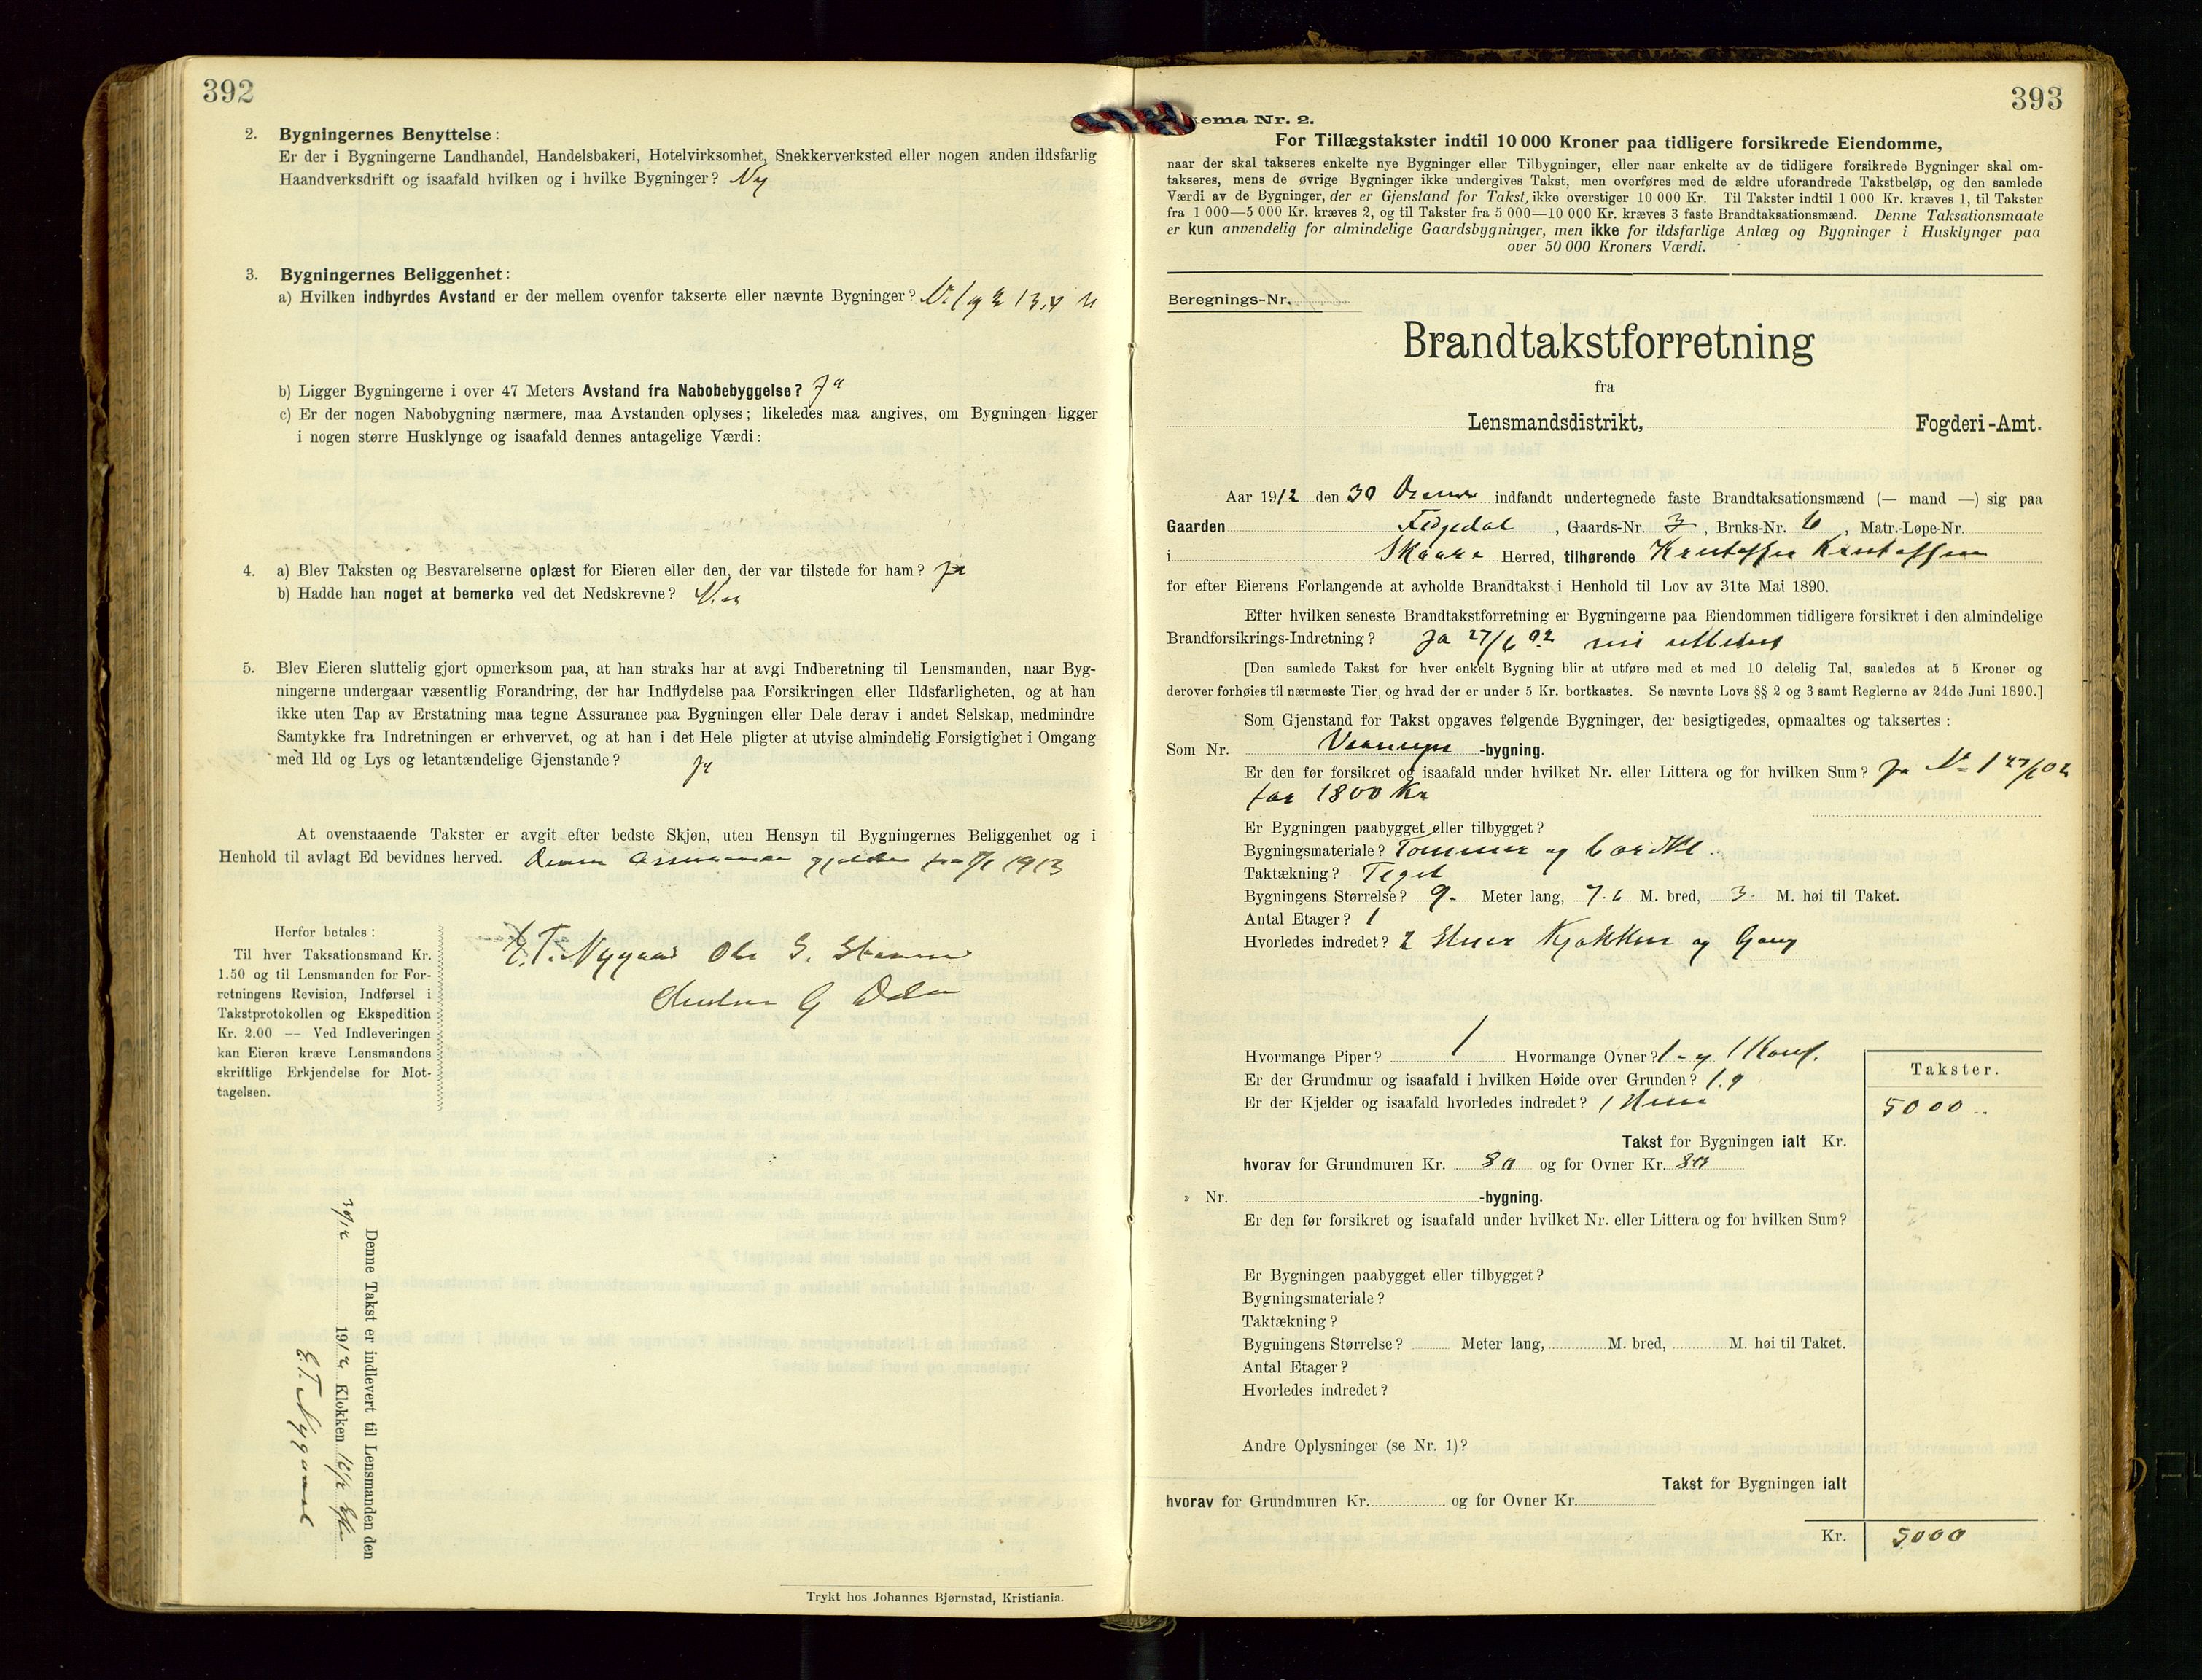 392
2. Bygningernes Benyttelse:
Er der i Bygningerne Landhandel, Handelsbakeri, Hotelvirksomhet, Snekkerverksted eller nogen anden ildsfarlig
Haandverksdrift og isaafald hvilken og i hvilke Bygninger?
3. Bygningernes Beliggenhet:
a) Hvilken indbyrdes Avstand er der mellem ovenfor takserte eller nævnte Bygninger? No 1 og 2 13,4 m
b) Ligger Bygningerne i over 47 Meters Avstand fra Nabobebyggelse? Ja
c) Er der nogen Nabobygning nærmere, maa Avstanden oplyses; likeledes maa angives, om Bygningen ligger
i nogen større Husklynge og isaafald dennes antagelige Værdi:
4. a) Blev Taksten og Besvarelserne oplæst for Eieren eller den, der var tilstede for ham? Ja
b) Hadde han noget at bemerke ved det Nedskrevne?
5. Blev Eieren sluttelig gjort opmerksom paa, at han straks har at avgi Indberetning til Lensmanden, naar Byg-
ningerne undergaar væsentlig Forandring, der har Indflydelse paa Forsikringen eller Ildsfarligheten, og at han
ikke uten Tap av Erstatning maa tegne Assurance paa Bygningen eller Dele derav i andet Selskap, medmindre
Samtykke fra Indretningen er erhvervet, og at han i det Hele pligter at utvise almindelig Forsigtighet i Omgang
med Ild og Lys og letantændelige Gjenstande? Ja
At ovenstaaende Takster er avgit efter bedste Skjøn, uten Hensyn til Bygningernes Beliggenhet og i
Henhold til avlagt Ed bevidnes herved. Denne Assurance gjelder fra 1/1 1913
Herfor betales:
Til hver Taksationsmand Kr.
1.50 og til Lensmanden for For-
retningens Revision, Indførsel i
Takstprotokollen og Ekspedition
Kr. 2.00 — Ved Indleveringen
kan Eieren kræve Lensmandens
skriftlige Erkjendelse for Mot-
tagelsen.
E. T. Nygaard Ole G.
G
Denne Takst er indlevert til Lensmanden den
30/12 1912 Klokken
E. T. Nygaard
Trykt hos Johannes Bjørnstad, Kristiania.
393
ema Nr. 2.
For Tillægstakster indtil 10 000 Kroner paa tidligere forsikrede Eiendomme,
naar der skal takseres enkelte nye Bygninger eller Tilbygninger, eller naar enkelte av de tidligere forsikrede Bygninger skal om-
takseres, mens de øvrige Bygninger ikke undergives Takst, men overføres med de ældre uforandrede Takstbeløp, og den samlede
Værdi av de Bygninger, der er Gjenstand for Takst, ikke overstiger 10 000 Kr. Til Takster indtil 1 000 Kr. kræves 1, til Takster
fra 1 000—5 000 Kr. kræves 2, og til Takster fra 5 000—10 000 Kr. kræves 3 faste Brandtaksationsmænd. Denne Taksationsmaate
er kun anvendelig for almindelige Gaardsbygninger, men ikke for ildsfarlige Anlæg og Bygninger i Husklynger paa
over 50 000 Kroners Værdi.
Beregnings-Nr.
Brandtakstforretning
fra
Lensmandsdistrikt, Fogderi-Amt.
Aar 1912 den 30 indfandt undertegnede faste Brandtaksationsmænd (— mand —) sig paa
Gaarden , Gaards-Nr. 3, Bruks-Nr. 6, Matr.-Løpe-Nr.
i Skaare Herred, tilhørende Kristoffer Kristoffersen
for efter Eierens Forlangende at avholde Brandtakst i Henhold til Lov av 31te Mai 1890.
Efter hvilken seneste Brandtakstforretning er Bygningerne paa Eiendommen tidligere forsikret i den almindelige
Brandforsikrings-Indretning? Ja 27/6 02
[Den samlede Takst for hver enkelt Bygning blir at utføre med et med 10 delelig Tal, saaledes at 5 Kroner og
derover forhøies til nærmeste Tier, og hvad der er under 5 Kr. bortkastes. Se nævnte Lovs §§ 2 og 3 samt Reglerne av 24de Juni 1890.]
Som Gjenstand for Takst opgaves følgende Bygninger, der besigtigedes, opmaaltes og taksertes:
Som Nr. Vaanings-bygning.
Er den før forsikret og isaafald under hvilket Nr. eller Littera og for hvilken Sum? Ja No 1 27/6 02
for 1800 Kr
Er Bygningen paabygget eller tilbygget?
Bygningsmateriale? Tømmer og
Taktækning? Tegel
Bygningens Størrelse? 9. Meter lang, 7.6 M. bred, 3. M. høi til Taket.
Antal Etager? 1
Hvorledes indredet? 2 Stuer Kjøkken og Gang
Hvormange Piper? 1 Hvormange Ovner? 1 - og 1 Komf.
Er der Grundmur og isaafald i hvilken Høide over Grunden? 1.9
Er der Kjelder og isaafald hvorledes indredet? 1
Takster.
5000 ..
Takst for Bygningen ialt Kr.
hvorav for Grundmuren Kr. 80 og for Ovner Kr. 80
» Nr. -bygning.
Er den før forsikret og isaafald under hvilket Nr. eller Littera og for hvilken Sum?
Er Bygningen paabygget eller tilbygget?
Bygningsmateriale?
Taktækning?
Bygningens Størrelse? Meter lang, M. bred, M. høi til Taket.
Antal Etager?
Hvorledes indredet?
Andre Oplysninger (se Nr. 1)?
Takst for Bygningen ialt
hvorav for Grundmuren Kr. og for Ovner Kr.
Kr. 5000